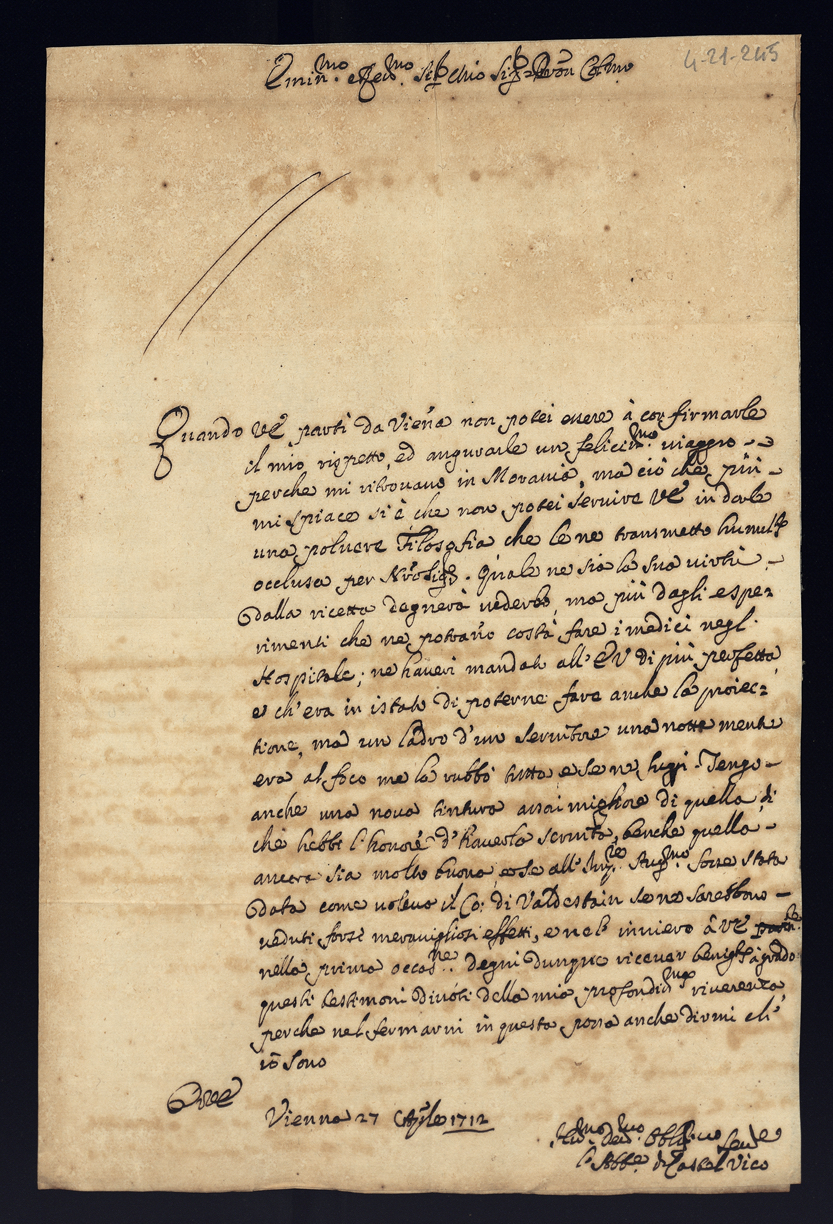 4-21-245
Emin.mo e Rev.mo Sig.r Sig.r Pron Col.mo
Quando VE partì da Viena non potei essere à confirmarle
il mio rispetto, ed augurarle un felicis.mo viaggio
perche mi ritrovavo in Moravia, ma ciò che più
mi spiace si è che non potei servire VE in darle
una polvere Filosofia che le ne transmetto humil.e
occlusa per Quale ne sia la sua virtù
dalla ricetta degnerà vederlo, ma più dagli espe=
rimenti che ne potraño costà fare i medici negl'
Hospitale; ne havevi mandato all' EV di più perfetta
e ch'era in istato di poterne fare anche la proiec=
tione, ma un ladro d'un servitore una notte mentre
era al foco me la rubbò tutta e se ne fuggì. Tengo
anche una nova tintura assai migliore di quella di
che hebbi l'honore d'haverla servita, benche quella
ancora sia molto buona, e se all' Aug.mo fosse stata
data come voleva il Co: di Valdestain se ne sarebbono
veduti forsi meravigliosi effetti, e ne la invierò à VE
nella prima occas.ne. degni dunque ricever benig.e à grado
questi testimoni divoti della mia profondis.ma riverenza,
perche nel fermarmi in questa possa anche dirmi ch'
iò sono
DVE
Vienna 27 Aple 1712
Hu.mo Dev.mo Obbl.mo Serv.e
l'Abb.e di Castel Vico